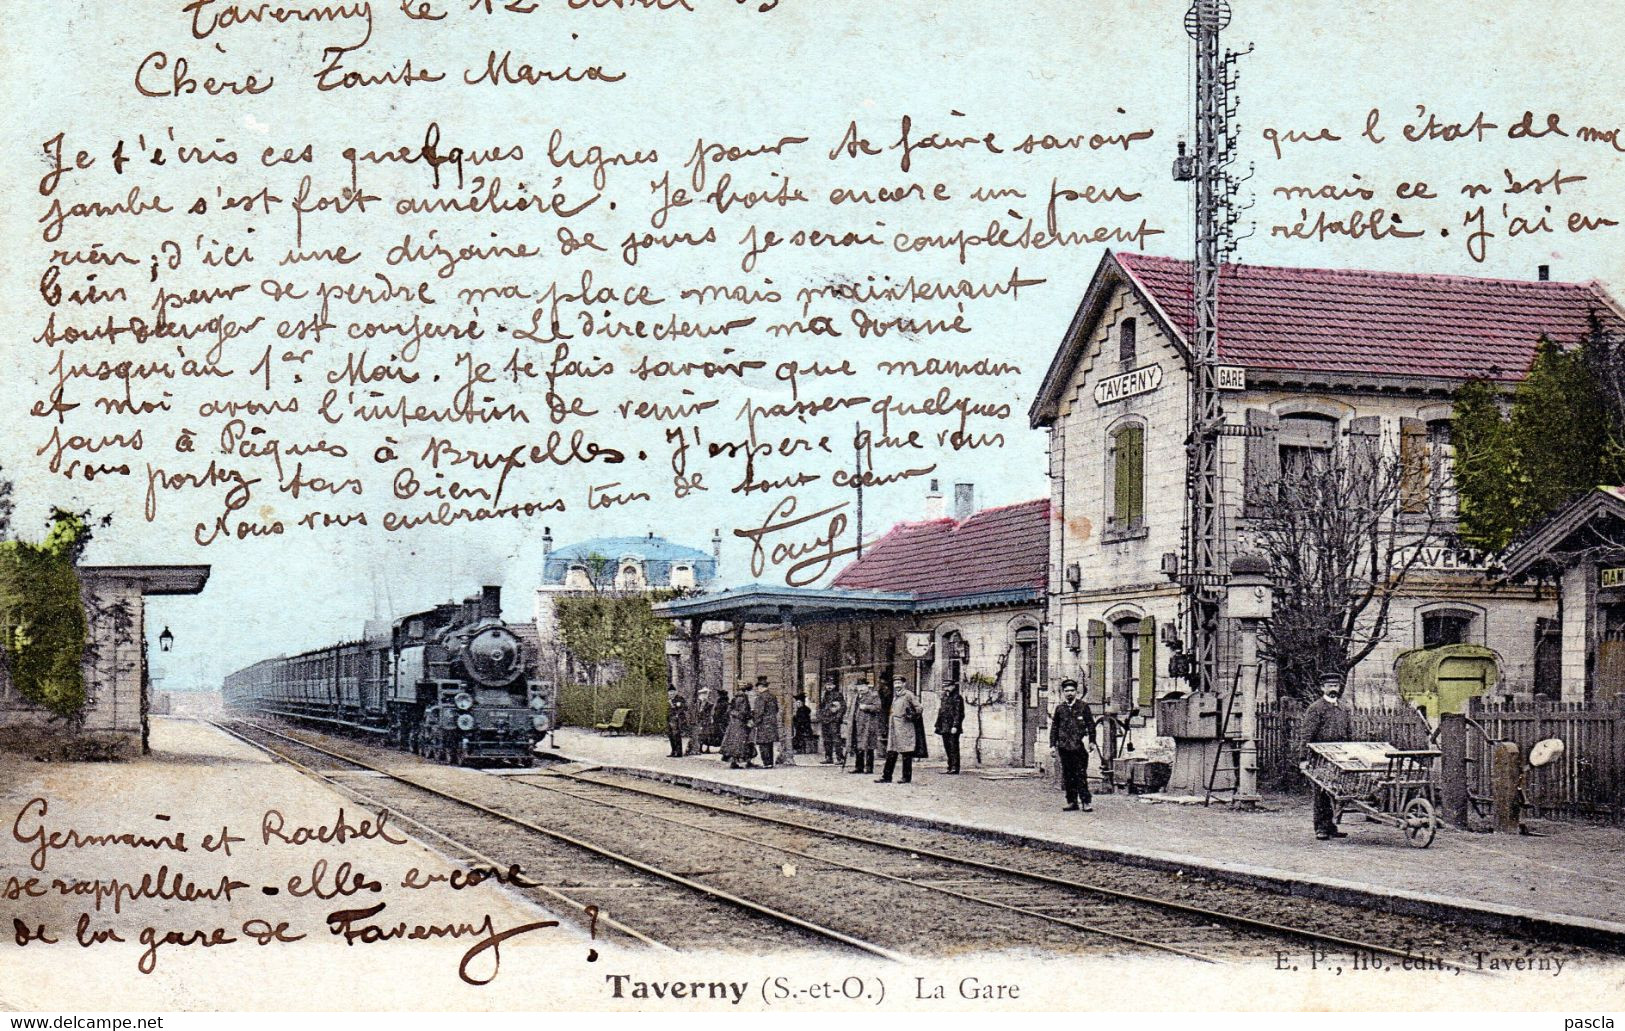 Taverny le 12 Avril
Chère Tante Maria
Je t'écris ces quelques lignes pour te faire savoir que l'état de ma
jambe s'est fort amélioré. Je boite encore un peu mais ce n'est
rien ; d'ici une dizaine de jours je serai complètement rétabli. J'ai eu
bien peur de perdre ma place mais maintenant
tout danger est conjuré. Le directeur m'a donné
jusqu'au 1er Mai. Je te fais savoir que maman
et moi avons l'intention de venir passer quelques
jours à Pâques à Bruxelles. J'espère que vous
vous portez tous bien
Nous vous embrassons tous de tout cœur
Paul
TAVERNY
GARE
TAVERNY
Germaine et Rachel
se rappellent-elles encore
de la gare de Taverny ?
E. P., lib. édit., Taverny
Taverny (S.-et-O.) La Gare
pascla